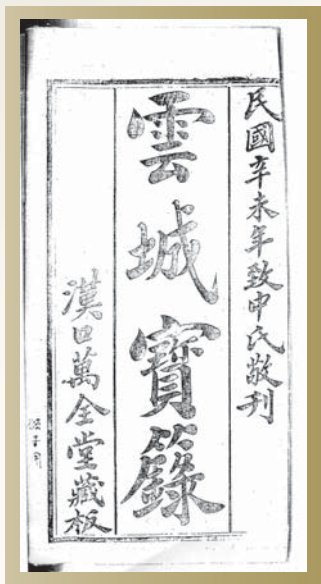 民國辛未年致中氏敬刊
雲城寶籙
漢口萬全堂藏板